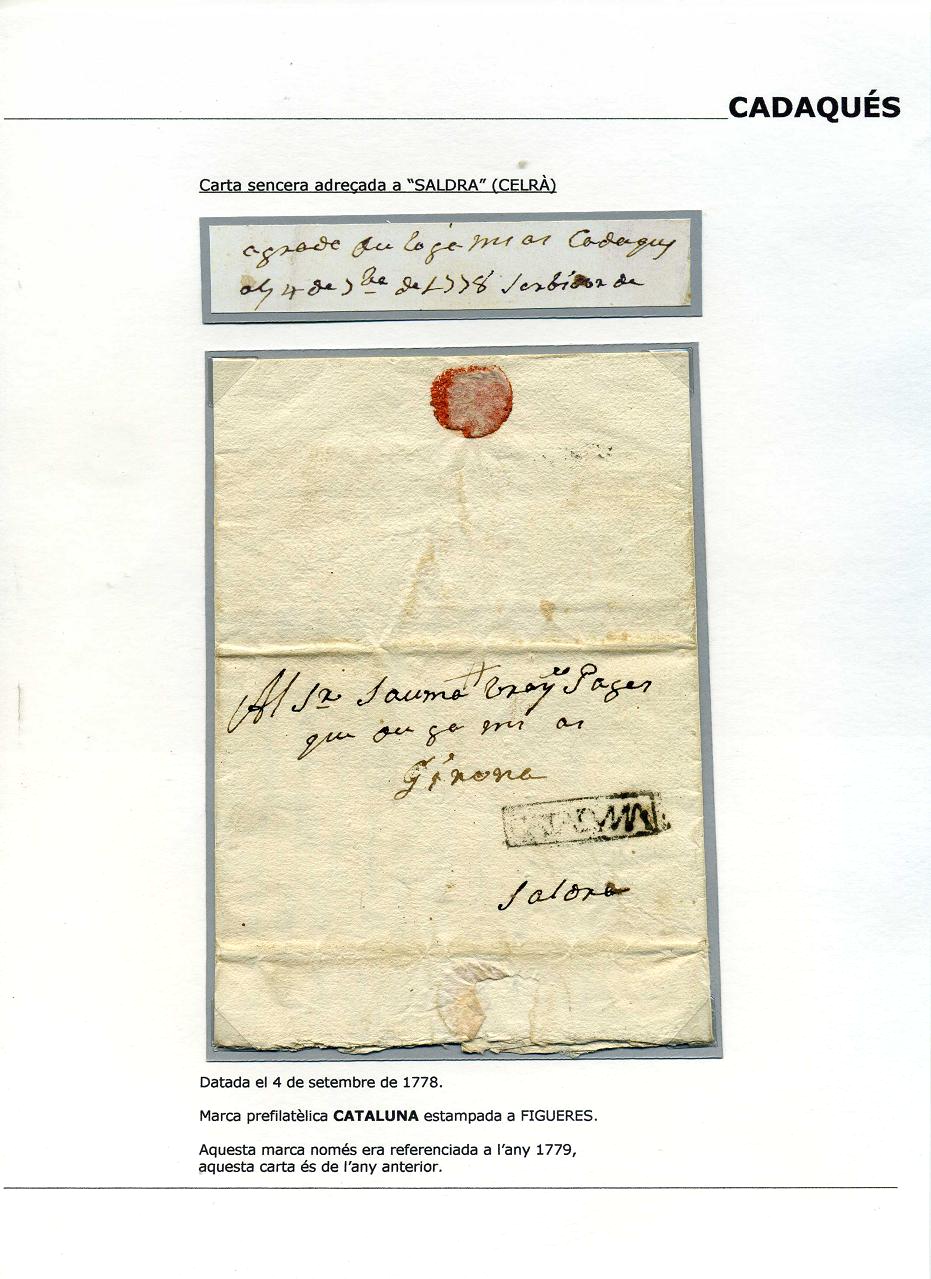 CADAQUÉS
Carta sencera adreçada a “SALDRA” (CELRÀ)
agrade Cadaques
als 4 de 7bre de 1778 Serbidor de
Al Sr. Jauma Pages
que
Girona
Saldra
Datada el 4 de setembre de 1778.
Marca prefilatèlica CATALUNA estampada a FIGUERES.
Aquesta marca només era referenciada a l’any 1779,
aquesta carta és de l’any anterior.